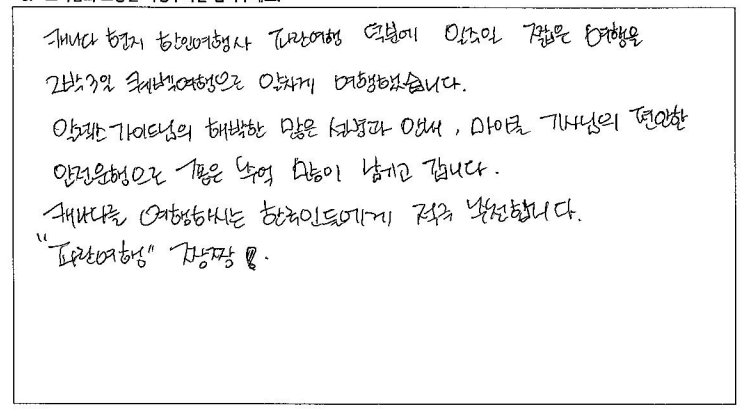 캐나다 현지 한인여행사 파란여행 덕분에 일주일 짧은 여행을
2박3일 퀘벡여행으로 알차게 여행했습니다.
알렉스 가이드님의 해박한 많은 설명과 안내, 마이클 기사님의 편안한
안전운행으로 좋은 추억 많이 남기고 갑니다.
캐나다를 여행하시는 한국인들에게 적극 추천합니다.
"파란여행" 짱짱!.